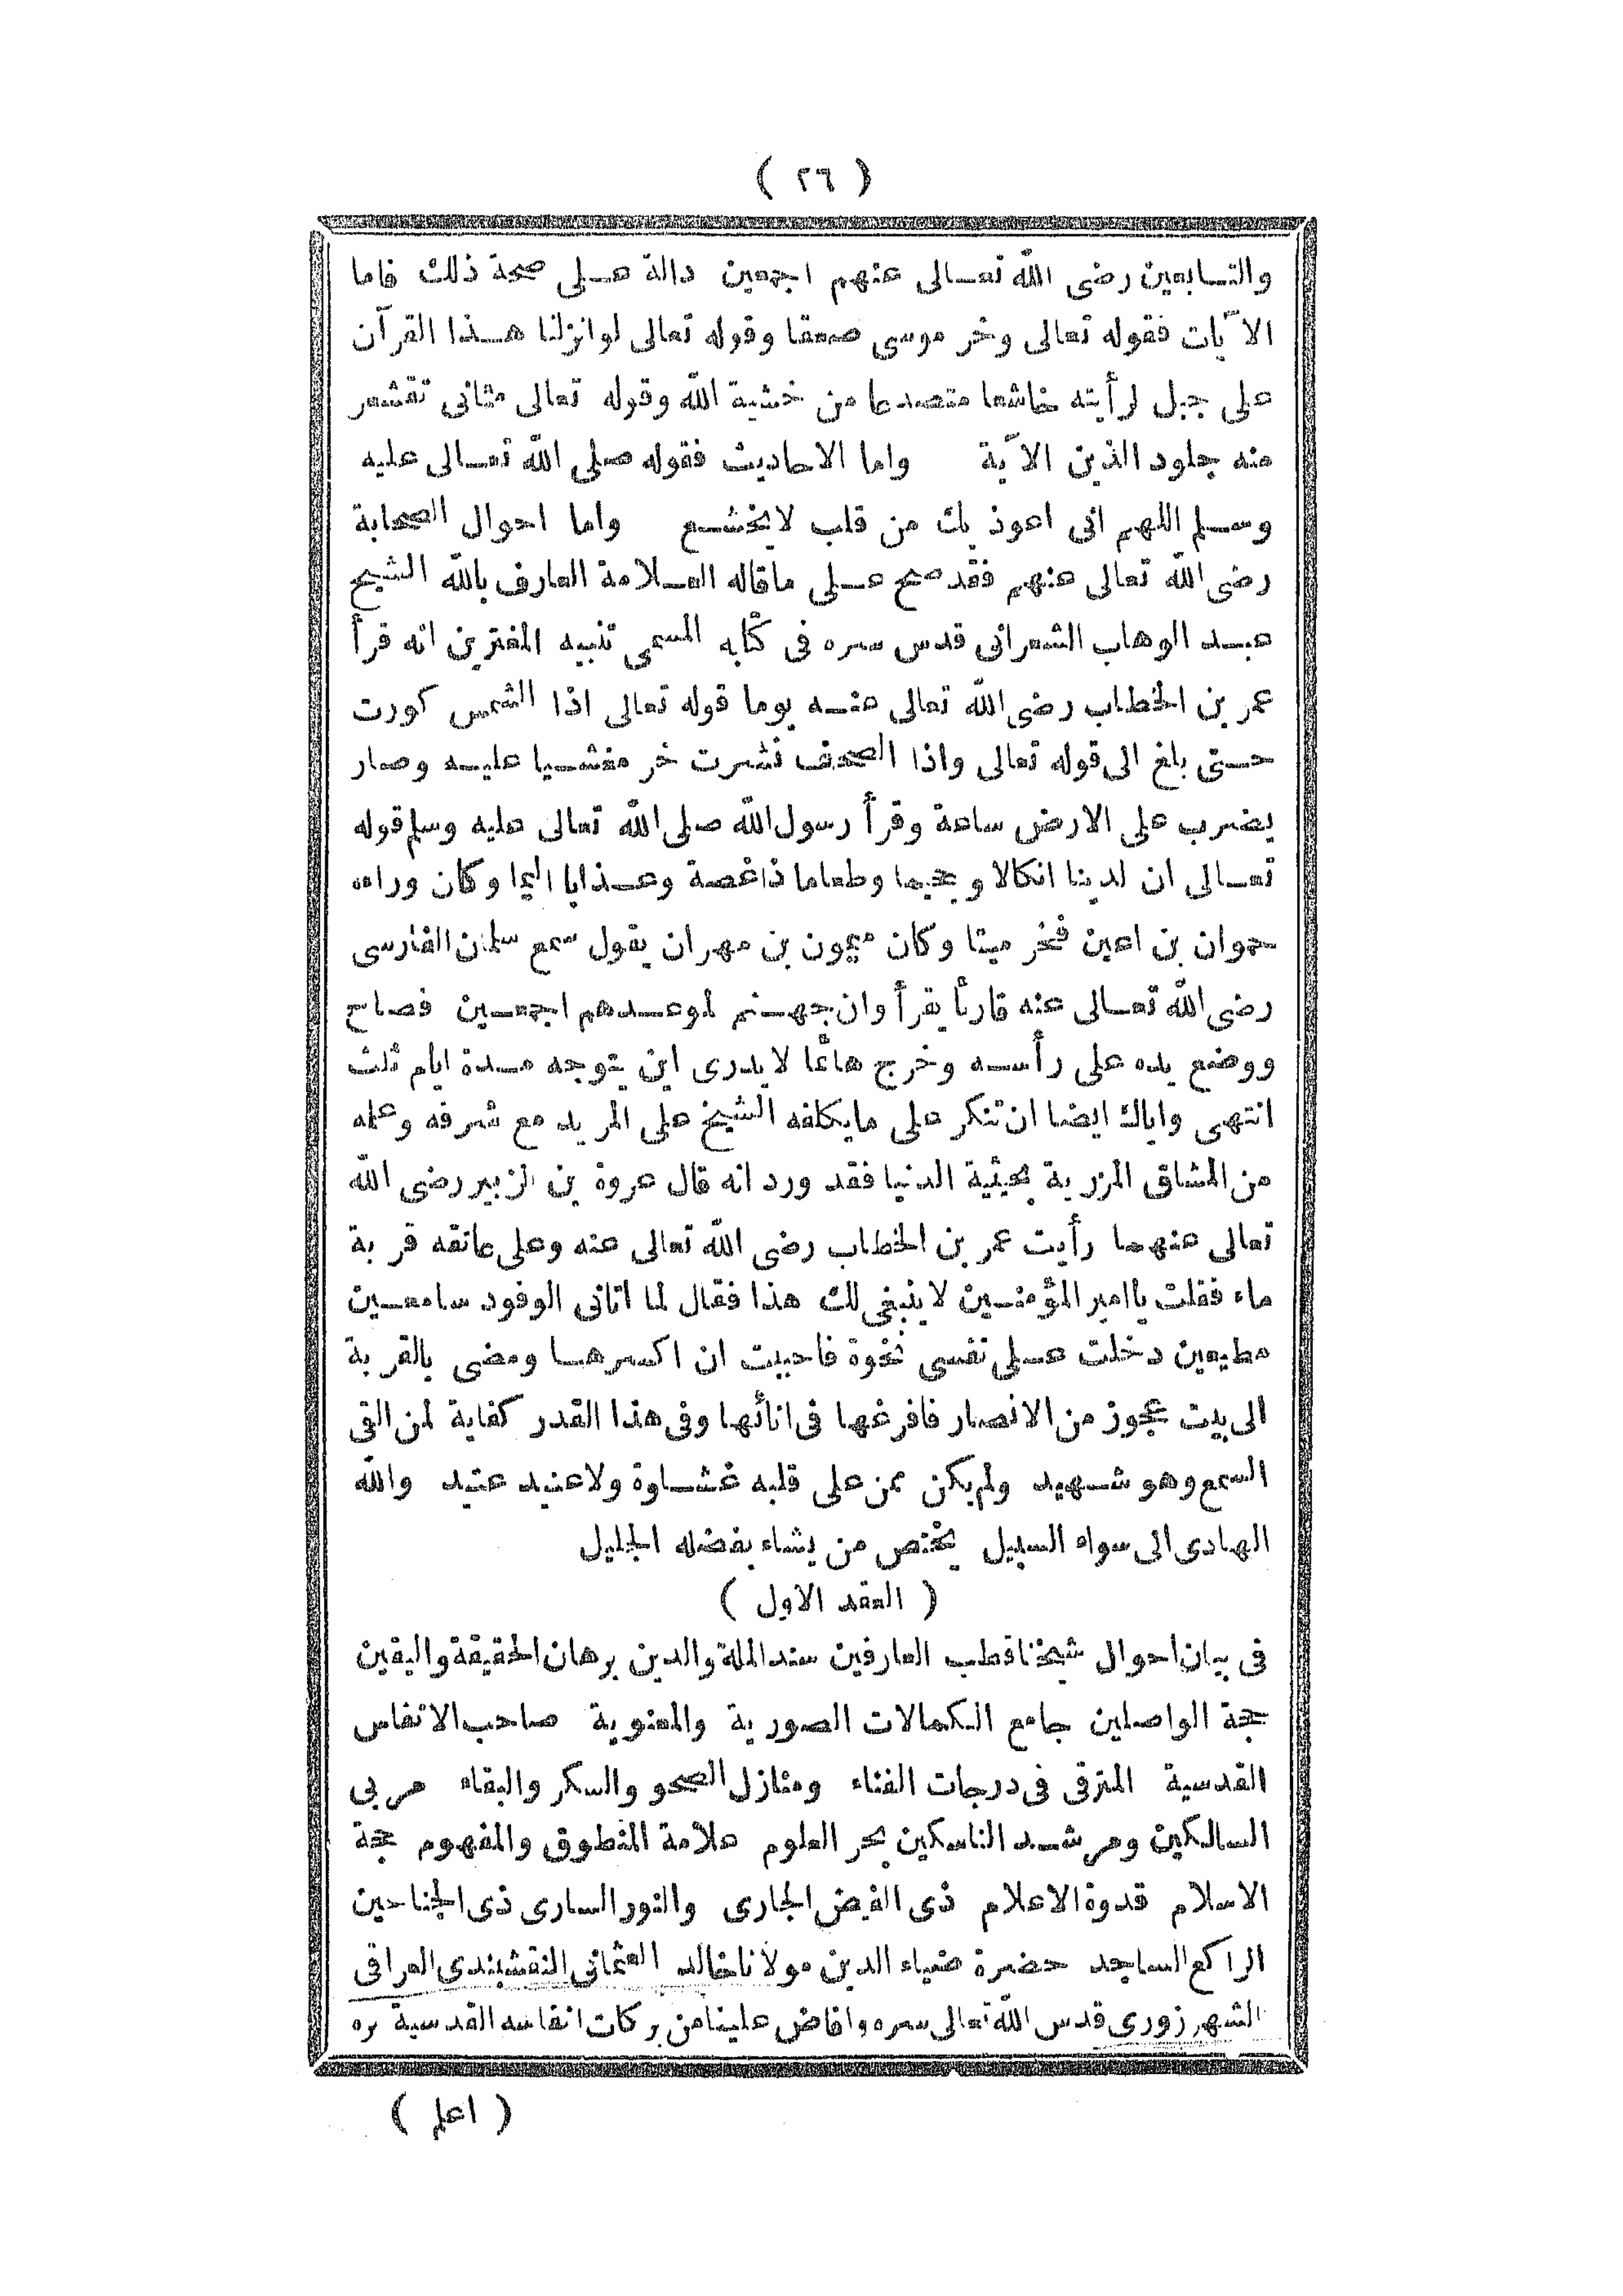 ( ٢٦ )
والتـابعين رضى الله تعـالى عنهم اجمعين دالة عـلى صحة ذلك فاما
الآيات فقوله تعالى وخر موسى صعقا وقوله تعالى لوانزلنا هـذا القرآن
على جبل لرأيته خاشعا متصدعا من خشية الله وقوله تعالى مثانى تقشعر
منه جلود الذين الآية واما الاحاديث فقوله صلى الله تعـالى عليه
وسـلم اللهم انى اعوذ بك من قلب لايخشـع واما احوال الصحابة
رضى الله تعالى عنهم فقد صح عـلى ماقاله العـلامة العارف بالله الشيخ
عبـد الوهاب الشعرانى قدس سره فى كتابه المسمى تنبيه المغترين انه قرأ
عمر بن الخطاب رضى الله تعالى عنـه يوما قوله تعالى اذا الشمس كورت
حـتى بلغ الى قوله تعالى واذا الصحف نشرت خر مغشـيا عليـه وصار
يضرب على الارض ساعة وقرأ رسول الله صلى الله تعالى عليه وسلم قوله
تعـالى ان لدينا انكالا وجحيما وطعاما ذاغصة وعـذابا اليما وكان وراءه
حموان بن اعين فخر ميتا وكان ميمون بن مهران يقول سمع سلمان الفارسى
رضى الله تعـالى عنه قارئا يقرأ وان جهـنم لموعـدهم اجمعـين فصاح
ووضع يده على رأسـه وخرج هائما لايدرى اين يتوجه مـدة ايام ثلث
انتهى واياك ايضا ان تنكر على مايكلفه الشيخ على المريد مع شرفه وعلمه
من المشاق المزرية بحيثية الدنيا فقد ورد انه قال عروة بن الزبير رضى الله
تعالى عنهما رأيت عمر بن الخطاب رضى الله تعالى عنه وعلى عاتقه قربة
ماء فقلت ياامير المؤمنـين لاينبغى لك هذا فقال لما اتانى الوفود سامعـين
مطيعين دخلت عـلى نفسى نخوة فاحببت ان اكسرهـا ومضى بالقربة
الى بيت عجوز من الانصار فافرغها فى انائها وفى هذا القدر كفاية لمن القى
السمع وهو شـهيد ولم يكن ممن على قلبه غشـاوة ولاعنيد عتيد والله
الهادى الى سواء السبيل يختص من يشاء بفضله الجليل
( العقد الاول )
فى بيان احوال شيخنا قطب العارفين سند الملة والدين برهان الحقيقة واليقين
حجة الواصلين جامع الكمالات الصورية والمعنوية صاحب الانفاس
القدسية المترقى فى درجات الفناء ومنازل الصحو والسكر والبقاء مربى
السالكين ومرشـد الناسكين بحر العلوم علامة المنطوق والمفهوم حجة
الاسلام قدوة الاعلام ذى الفيض الجارى والنور السارى ذى الجناحين
الراكع الساجد حضرة ضياء الدين مولانا خالد العثمانى النقشبندى العراقى
الشهرزورى قدس الله تعالى سره وافاض علينا من بركات انفاسه القدسية بره
( اعلم )